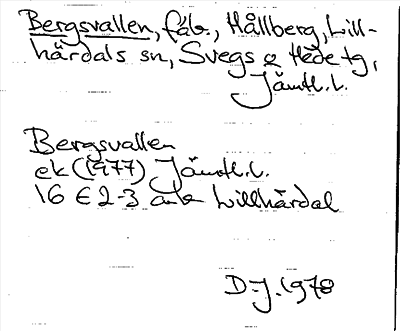 Bergsvallen, fäb., Hållberg, Lill-
härdals sn, Svegs o Hede tg,
Jämtl.l.
Bergsvallen
ek (1977) Jämtl.l.
16 E 2-3 a-b Lillhärdal
D-J. 1978